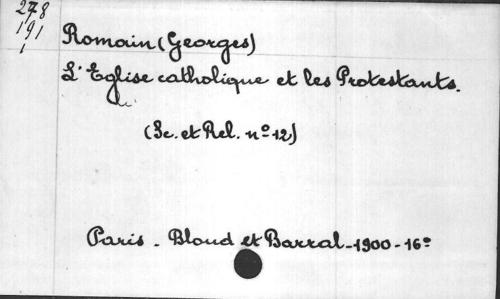 278
191
1
Romain (Georges)
L'Eglise catholique et les Protestants.
(Sc. et Rel. nº 12)
Paris - Bloud et Barral - 1900 - 16º